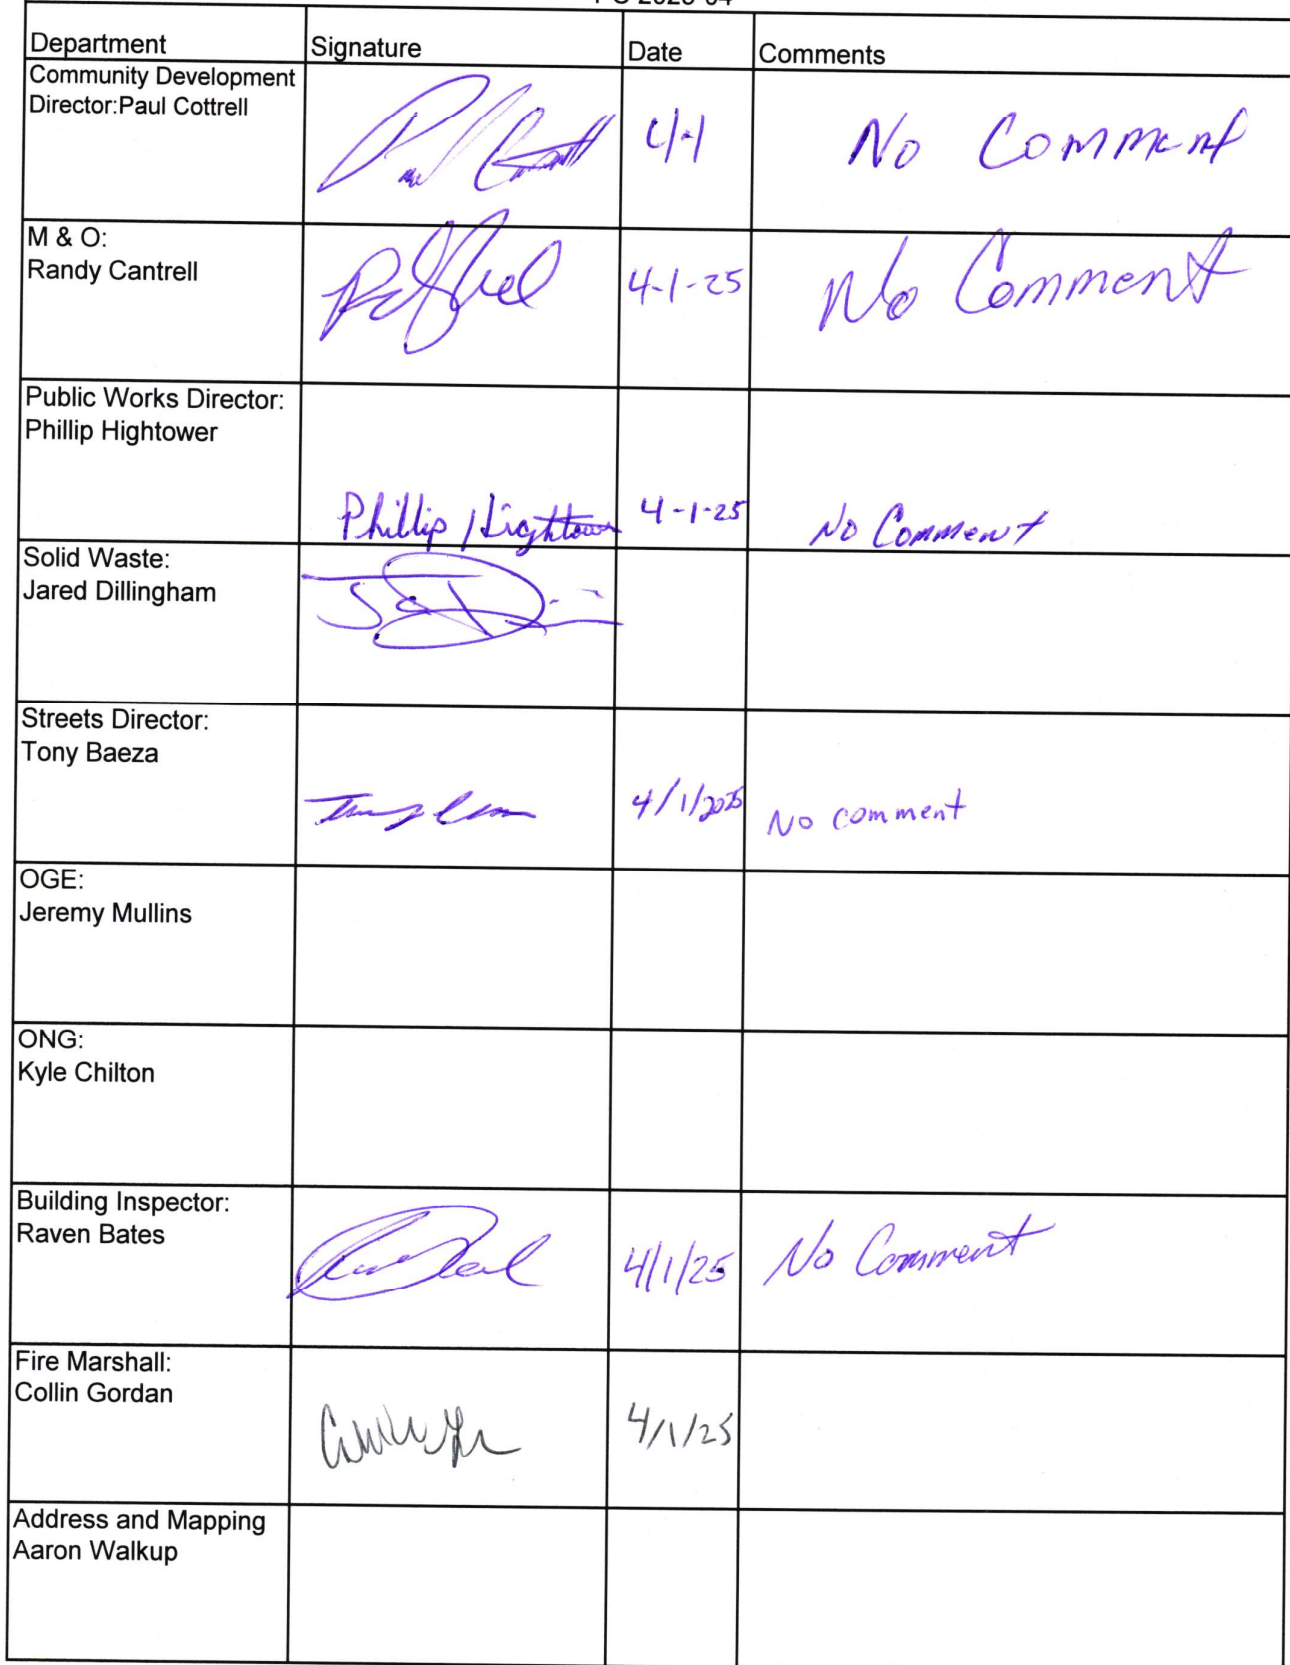 Department Signature Date Comments
Community Development
Director:Paul Cottrell
4-1 No Comment
M & O:
Randy Cantrell
4-1-25 No Comment
Public Works Director:
Phillip Hightower
Phillip Hightower 4-1-25 No Comment
Solid Waste:
Jared Dillingham
Streets Director:
Tony Baeza
4/1/2025 No comment
OGE:
Jeremy Mullins
ONG:
Kyle Chilton
Building Inspector:
Raven Bates
4/1/25 No Comment
Fire Marshall:
Collin Gordan
4/1/25
Address and Mapping
Aaron Walkup